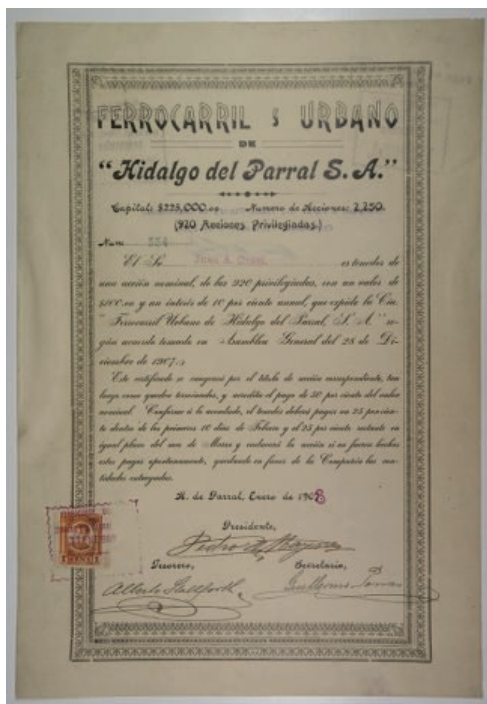 FERROCARRIL s URBANO
DE
"Hidalgo del Parral S. A."
Capital: $225,000.00 Numero de Acciones: 2,250
(920 Acciones Privilegiadas.)
Num 334
El Sr. Juan A. es tenedor de
una acción nominal, de las 920 privilegiadas, con un valor de
$100.00 y un interés de 10 por ciento anual, que expide la Cía
"Ferrocarril Urbano de Hidalgo del Parral, S. A." se-
gún acuerdo tomado en Asamblea General del 28 de Di-
ciembre de 1907.
Este certificado se cangeará por el título de acción correspondiente, tan
luego como queden terminados, y acredita el pago de 50 por ciento del valor
nominal. Conforme á lo acordado, el tenedor deberá pagar un 25 por cien-
to dentro de los primeros 10 días de Febrero y el 25 por ciento restante en
igual plazo del mes de Marzo y caducará la acción si no fueren hechos
estos pagos oportunamente, quedando en favor de la Compañía las can-
tidades entregadas.
H. de Parral, Enero de 1908
Presidente,
Tesorero, Secretario,
Alberto Stallforth